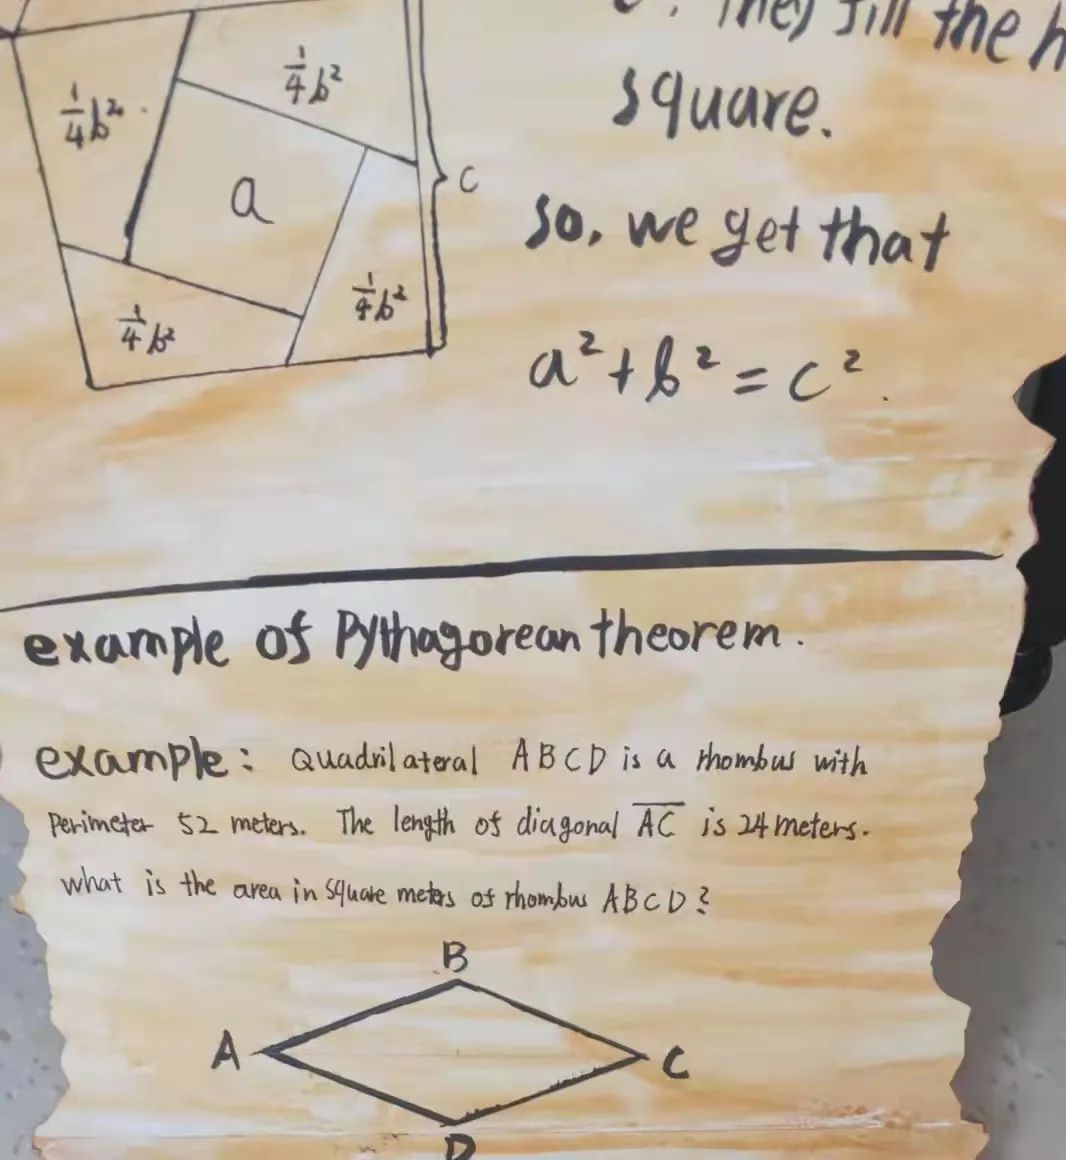 They fill the
square.
so, we get that
a²+b²=c².
1/4 b²
1/4 b²
a
c
1/4 b²
1/4 b²
example of Pythagorean theorem.
example: Quadrilateral ABCD is a rhombus with
Perimeter 52 meters. The length of diagonal A̅C̅ is 24 meters.
what is the area in square meters of rhombus ABCD?
B
A
C
D